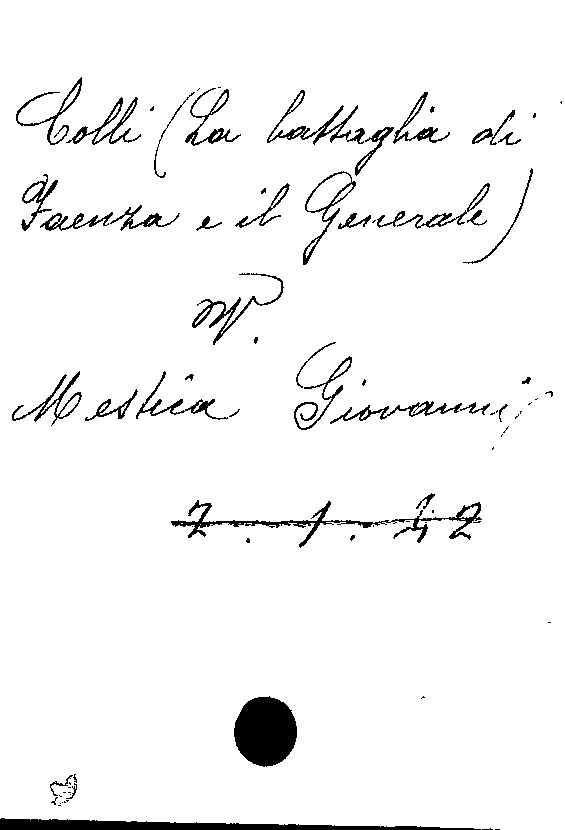 Colli (La battaglia di
Faenza e il Generale)
Mestica Giovanni
7. 1. 42